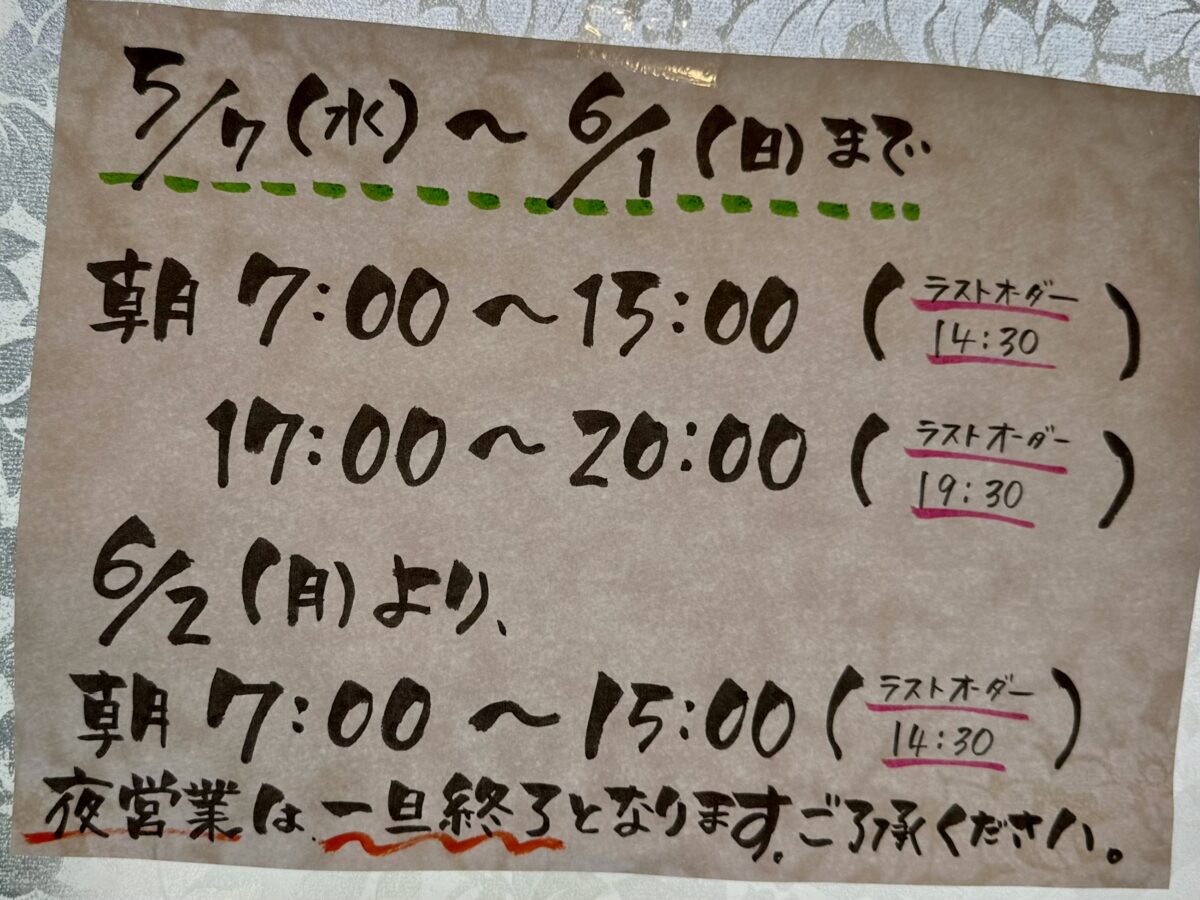 5/7(水)～6/1(日)まで
朝 7:00～15:00 (ラストオーダー 14:30)
17:00～20:00 (ラストオーダー 19:30)
6/2(月)より、
朝 7:00～15:00 (ラストオーダー 14:30)
夜営業は、一旦終了となります。ご了承ください。